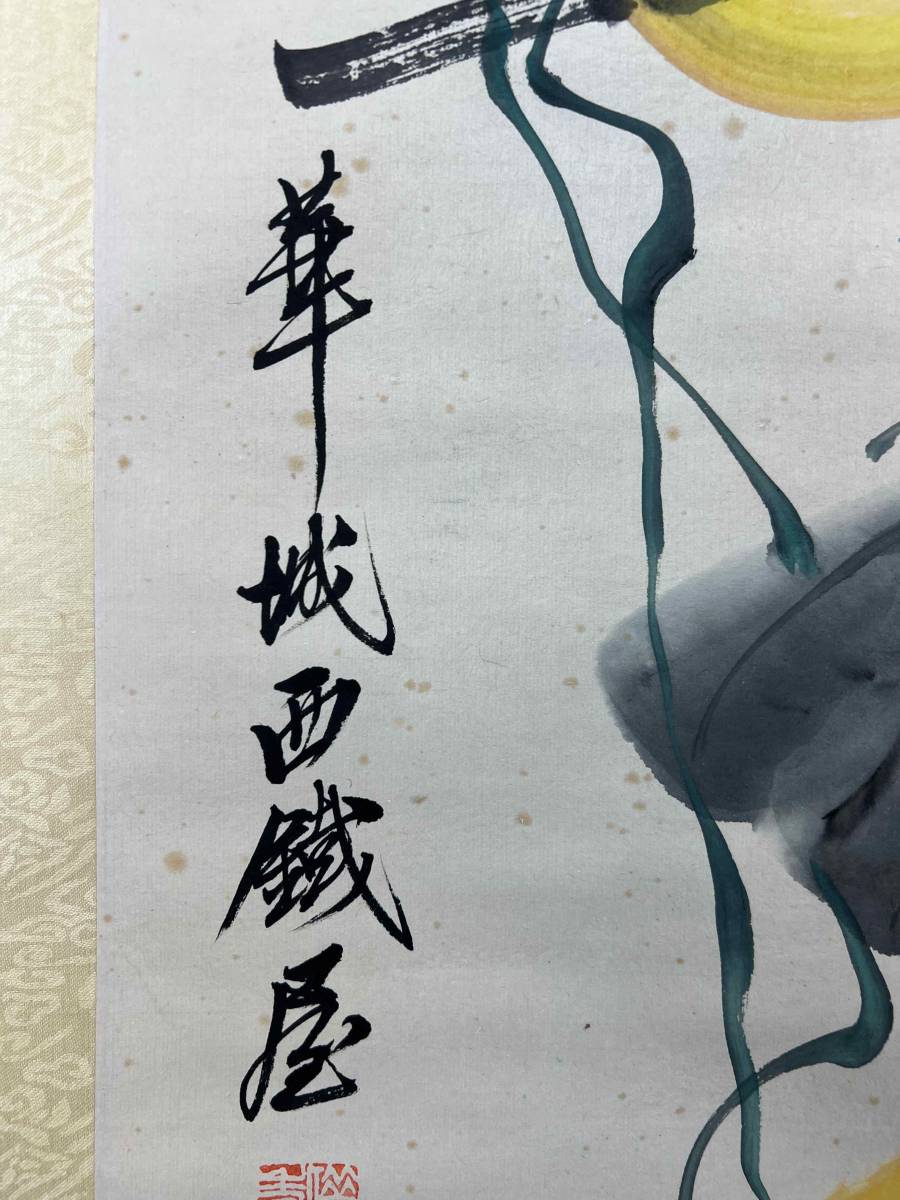 華城西鐵屋